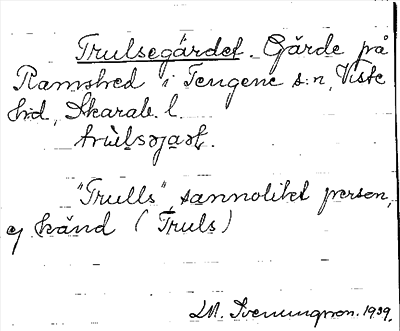 Trulsegärdet. Gärde på
Ramshed i Tengene s:n, Viste
hd, Skarab. l.
"Trulls", sannolikt person,
ej känd (Truls)
D. M. Svenungsson. 1939.